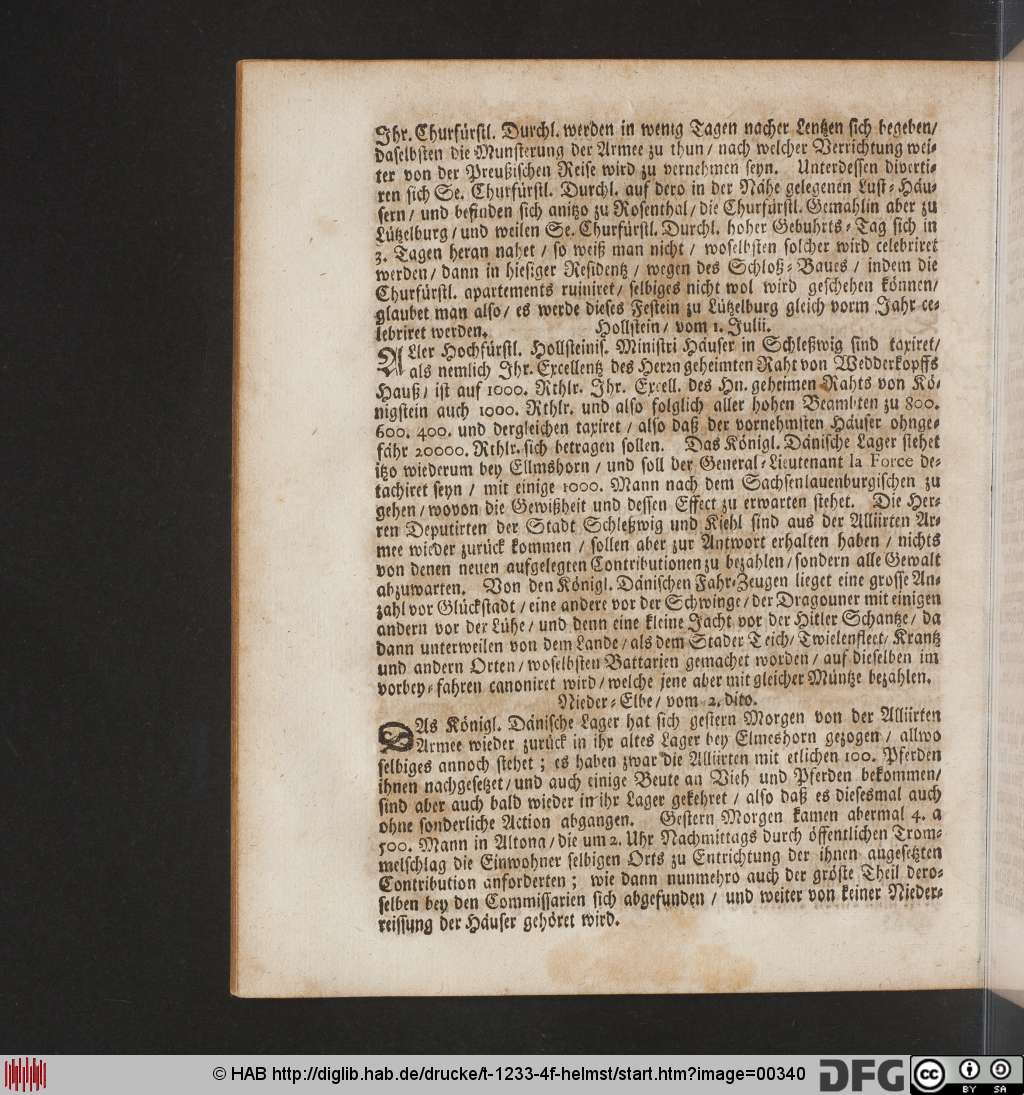 Ihr. Churfürstl. Durchl. werden in wenig Tagen nacher Lentzen sich begeben/
daselbsten die Munsterung der Armee zu thun/ nach welcher Verrichtung wei-
ter von der Preußischen Reise wird zu vernehmen seyn. Unterdessen diverti-
ren sich Se. Churfürstl. Durchl. auf dero in der Nähe gelegenen Lust-Häu-
sern/ und befinden sich anitzo zu Rosenthal/ die Churfürstl. Gemahlin aber zu
Lützelburg/ und weilen Se. Churfürstl. Durchl. hoher Gebuhrts-Tag sich in
3. Tagen heran nahet/ so weiß man nicht/ woselbsten solcher wird celebriret
werden/ dann in hiesiger Residentz/ wegen des Schloß-Baues/ indem die
Churfürstl. apartements ruiniret/ selbiges nicht wol wird geschehen können/
glaubet man also/ es werde dieses Festein zu Lützelburg gleich vorm Jahr ce-
lebriret werden. Hollstein/ vom 1. Julii.
ALler Hochfürstl. Hollsteinis. Ministri Häuser in Schleßwig sind taxiret/
als nemlich Ihr. Excellentz des Herrn geheimten Raht von Wedderkopffs
Hauß/ ist auf 1000. Rthlr. Ihr. Excell. des Hn. geheimen Rahts von Kö-
nigstein auch 1000. Rthlr. und also folglich aller hohen Beambten zu 800.
600. 400. und dergleichen taxiret/ also daß der vornehmsten Häuser ohnge-
fähr 20000. Rthlr. sich betragen sollen. Das Königl. Dänische Lager stehet
itzo wiederum bey Ellmshorn/ und soll der General-Lieutenant la Force de-
tachiret seyn/ mit einige 1000. Mann nach dem Sachsenlauenburgischen zu
gehen/ wovon die Gewißheit und dessen Effect zu erwarten stehet. Die Her-
ren Deputirten der Stadt Schleßwig und Kiehl sind aus der Alliirten Ar-
mee wieder zurück kommen/ sollen aber zur Antwort erhalten haben/ nichts
von denen neuen aufgelegten Contributionen zu bezahlen/ sondern alle Gewalt
abzuwarten. Von den Königl. Dänischen Fahr-Zeugen lieget eine grosse An-
zahl vor Glückstadt/ eine andere vor der Schwinge/ der Dragouner mit einigen
andern vor der Lühe/ und denn eine kleine Jacht vor der Hitler Schantze/ da
dann unterweilen von dem Lande/ als dem Stader Teich/ Twielenfleet/ Krantz
und andern Orten/ woselbsten Battarien gemachet worden/ auf dieselben im
vorbey-fahren canoniret wird/ welche jene aber mit gleicher Müntze bezahlen.
Nieder-Elbe/ vom 2. dito.
DAs Königl. Dänische Lager hat sich gestern Morgen von der Alliirten
Armee wieder zurück in ihr altes Lager bey Elmeshorn gezogen/ allwo
selbiges annoch stehet; es haben zwar die Alliirten mit etlichen 100. Pferden
ihnen nachgesetzet/ und auch einige Beute an Vieh und Pferden bekommen/
sind aber auch bald wieder in ihr Lager gekehret/ also daß es diesesmal auch
ohne sonderliche Action abgangen. Gestern Morgen kamen abermal 4. a
500. Mann in Altona/ die um 2. Uhr Nachmittags durch öffentlichen Trom-
melschlag die Einwohner selbigen Orts zu Entrichtung der ihnen angesetzten
Contribution anforderten; wie dann nunmehro auch der gröste Theil dero-
selben bey den Commissarien sich abgefunden/ und weiter von keiner Nieder-
reissung der Häuser gehöret wird.
© HAB http://diglib.hab.de/drucke/t-1233-4f-helmst/start.htm?image=00340
DFG
cc BY SA